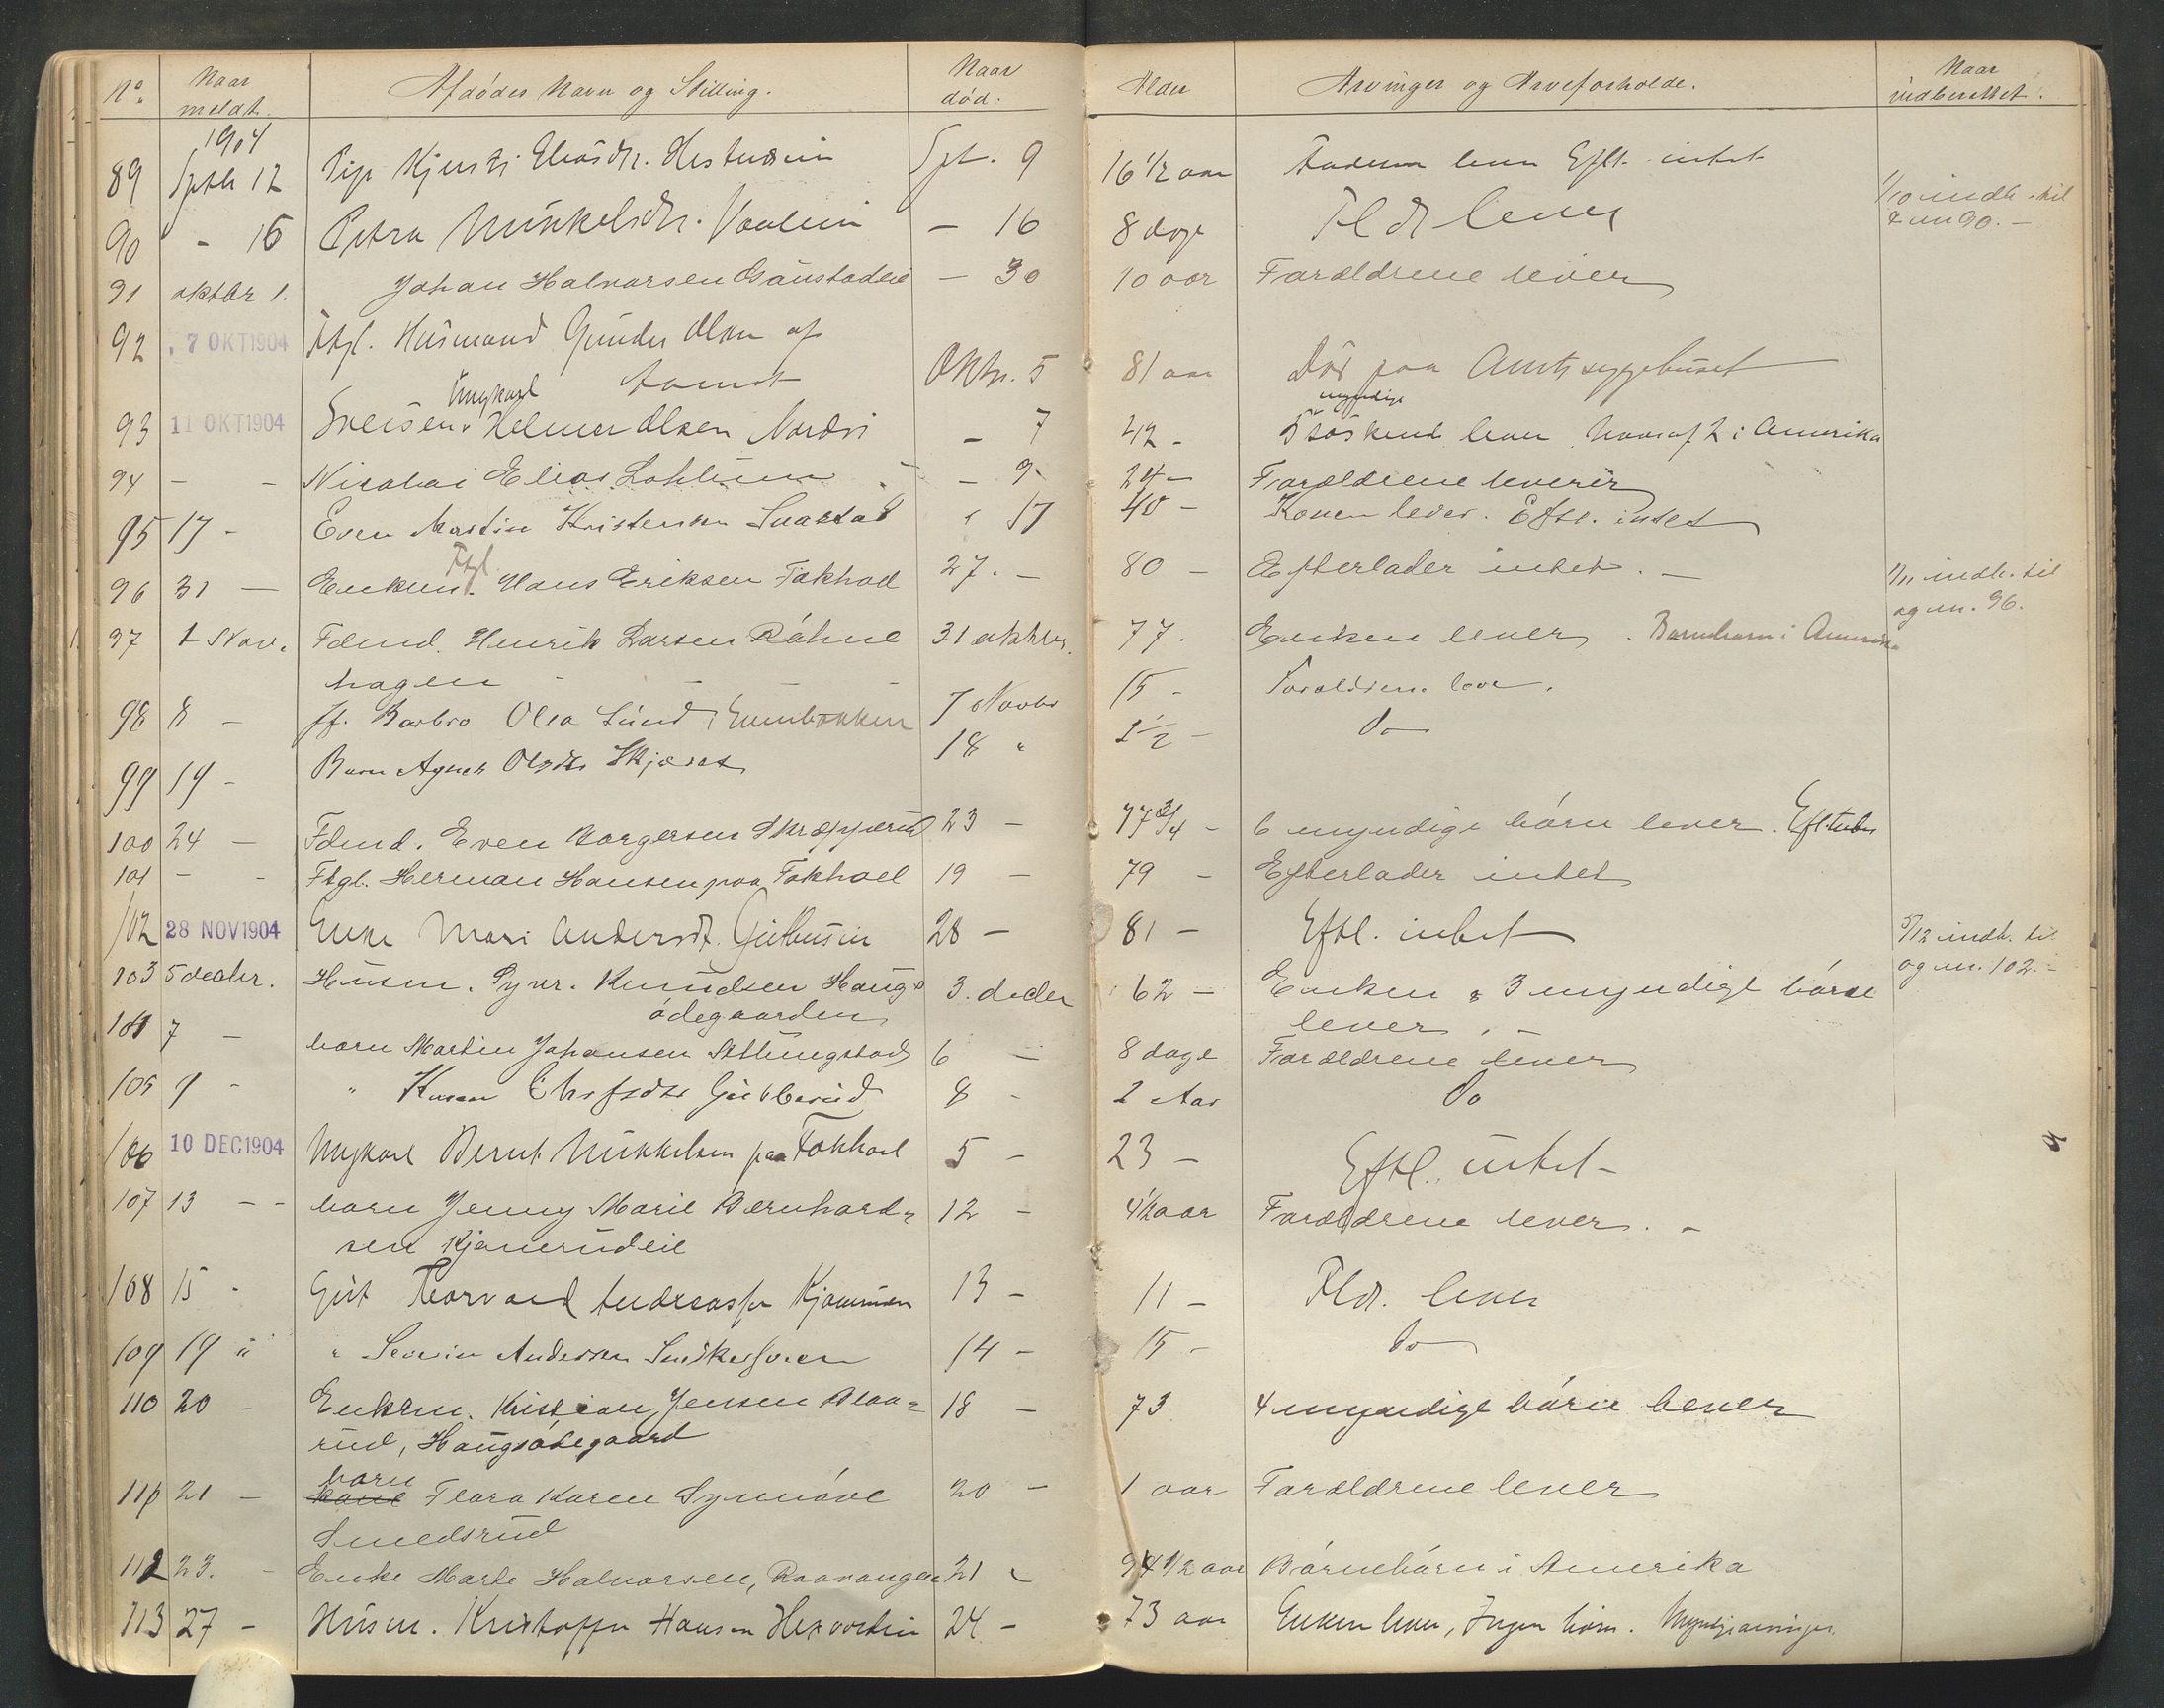 No. Naar meldt. Afdödes Navn og Stilling. Naar död. Alder Arvinger og Arveforholde. Naar indberettet.
1904
89 Septb 12 Pige Kjersti Eliasdtr. Spt. 9 16 1/2 aar lever Eftl. intet
1/10 indb. til
90 - 16 Petra Mikkelsdtr. - 16 8 dage Fldr lever
og nr 90. -
91 oktbr 1. Johan Halvorsen - 30 10 aar Forældrene lever
92 7 OKT 1904 Ftgl. Husmand Gunder Olsen af
Oktr. 5 81 aar Död paa Amtssygehuset
Ungkarl
myndige
93 11 OKT 1904 Helmer Olsen Nordvi - 7 42 - 5 söskend lever hvoraf 2 i Amerika
94 - - Nicolai Elias - 9 24 - Forældrene leverer
95 17 - Even Martin Kristensen - 17 40 - Konen lever. Eftl. intet
Ftgl
96 31 - Enkem. Hans Eriksen Fokhoel 27. - 80 - Efterlader intet. -
1/11 indb. til
og nr. 96.
97 1 Nov. Fdmd. Henrik Larsen Röhne 31 oktbr. 77. Enken lever. Barnebarn i Amerika
hagen
98 8 - ff. Barbro Olea Lund, 7 Novbr 15 - Forældrene lever.
99 19 - Barn Agnes Olsdtr Skjæret 18 " 1 1/2 - Do
100 24 - Fdmd. Even Borgersen 23 - 77 3/4 - 6 myndige börn lever.
101 - - Ftgl. Herman Hansen paa Fokhoel 19 - 79 - Efterlader intet
102 28 NOV 1904 Enke Mari Andersdt. 28 - 81 - Eftl. intet
5/12 indb. til
og nr. 102. -
103 5 decbr. Husm. Syver Knudsen Haugs 3. decbr 62 - Enken & 3 myndige börn
ödegaarden lever. -
104 7 - barn Martin Johansen Attungstad 6 - 8 dage Forældrene lever
105 9 - " Karen 8 - 2 Aar Do
106 10 DEC 1904 Ungkarl Bernt Mikkelsen paa Fokhoel 5 - 23 - Eftl. intet -
107 13 - - barn Jenny Marie Bernhard= 12 - 4 1/2 aar Forældrene lever. -
sen Kjonerudeie
108 15 - Gut Thorvald Andreassen 13 - 11 - Fldr. lever
109 19 " " Severin Andersen 14 - 15 - Do
110 20 - Enkem. Kristian Jensen Blaa= 18 - 73 4 myndige börn lever
rud, Haugsödegaard
barn
111 21 - kone Flora Karen Synnöve 20 - 1 aar Forældrene lever
Smedsrud
112 23. - Enke Marte Halvorsen, Raavangen 21 - 94 1/2 aar Börnebörn i Amerika
113 27 - Husm. Kristoffer Hansen 24 - 73 aar Enken lever, Ingen börn.